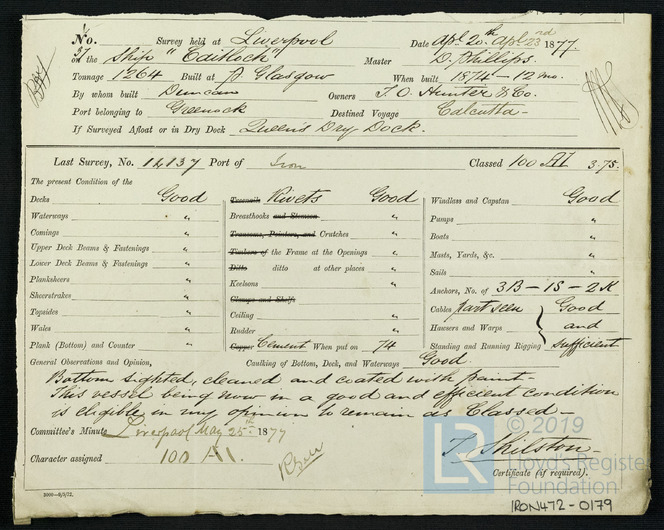 No. Survey held at Liverpool Date Apl. 20th Apl 23rd 1877.
on the Ship "Cairlock" Master D. Phillips.
Tonnage 1264 Built at P. Glasgow When built 1874 - 12 mo.
By whom built Duncan Owners T. O. Hunter & Co.
Port belonging to Greenock Destined Voyage Calcutta -
If Surveyed Afloat or in Dry Dock Queen's Dry Dock.
Last Survey, No. 14137 Port of Iron Classed 100 A1 3.75.
The present Condition of the
Decks Good
Waterways "
Comings "
Upper Deck Beams & Fastenings "
Lower Deck Beams & Fastenings "
Planksheers "
Sheerstrakes "
Topsides "
Wales "
Plank (Bottom) and Counter "
Treenails Rivets Good
Breasthooks and Stemson "
Transoms, Pointers, and Crutches "
Timbers of the Frame at the Openings "
Ditto ditto at other places "
Keelsons "
Clamps and Shelfs
Ceiling "
Rudder "
Copper Cement When put on 74
Caulking of Bottom, Deck, and Waterways Good
Windlass and Capstan Good
Pumps "
Boats "
Masts, Yards, &c. "
Sails "
Anchors, No. of 3B - 1S - 2K
Cables part seen Good
Hawsers and Warps and
Standing and Running Rigging sufficient
General Observations and Opinion,
Bottom sighted, cleaned and coated with paint -
This vessel being now in a good and efficient condition
is eligible in my opinion to remain as Classed -
Committee's Minute Liverpool May 25th 1877
Character assigned 100 A1.
T. Skilston
Certificate (if required).
© 2019
LR Lloyd's Register
Foundation
IRON472-0179